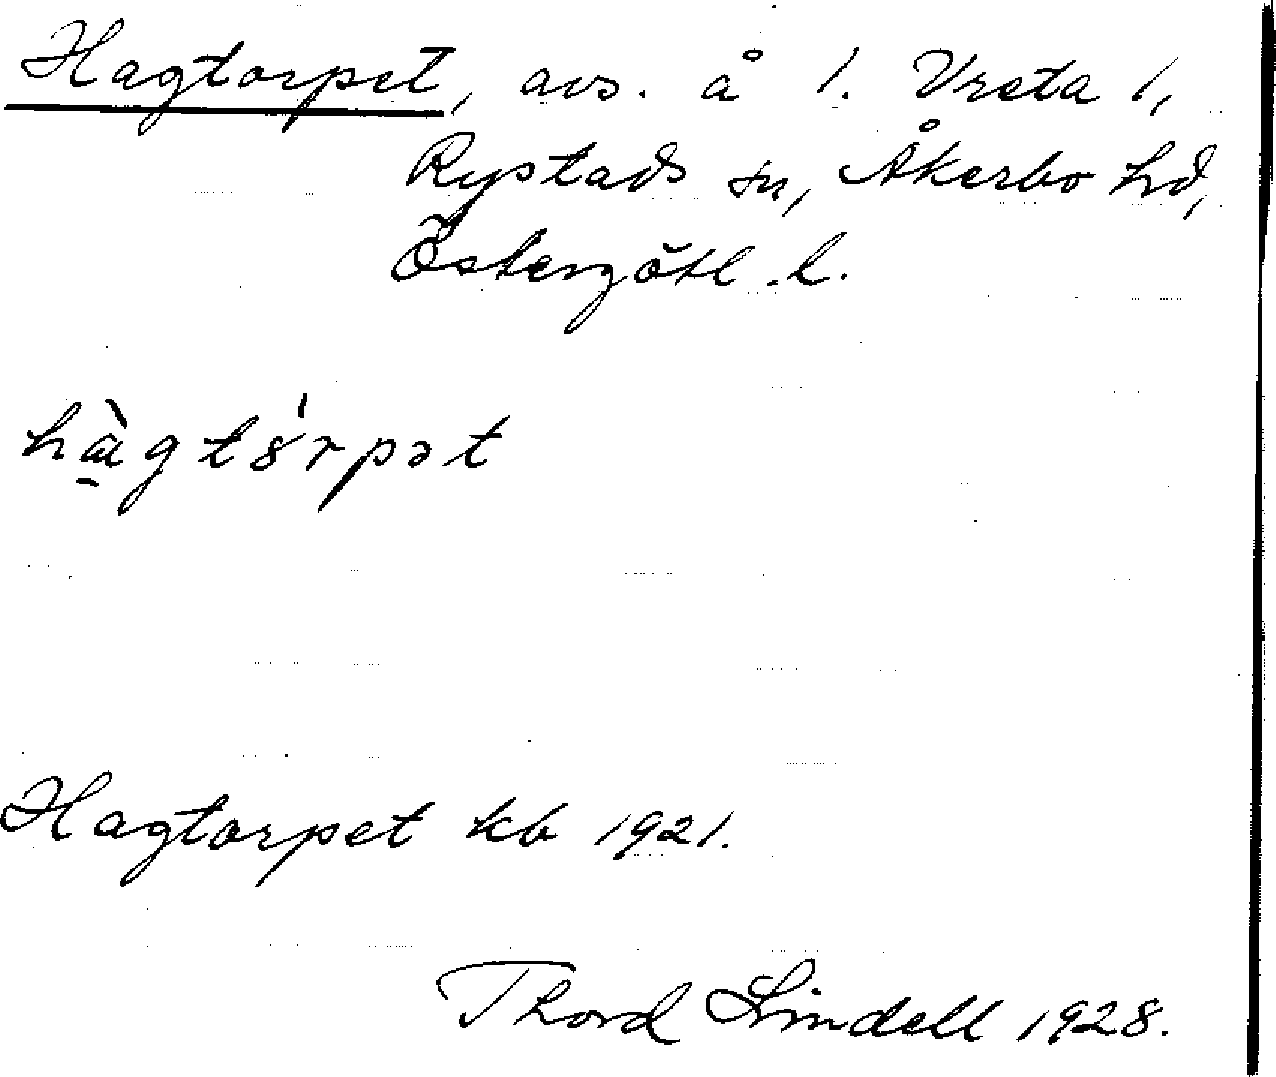 Hagtorpet, avs. å 1. Vreta 1,
Rystads sn, Åkerbo hd,
Östergötl. l.
hàgtórpət
Hagtorpet kb 1921.
Thord Lindell 1928.